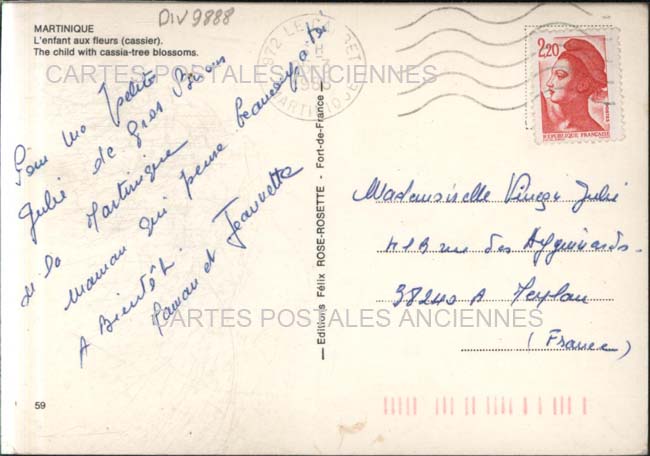 Div 9888
MARTINIQUE
L'enfant aux fleurs (cassier).
The child with cassia-tree blossoms.
CARTES POSTALES ANCIENNES
972 LE
MARTINIQUE
2,20
REPUBLIQUE FRANÇAISE
POSTES
Pour ma petite
Julie de gros Baisers
de la Martinique
maman qui pense beaucoup à toi
A Bientôt.
Maman et Jeannette
Editions Félix ROSE-ROSETTE - Fort-de-France
Mademoiselle Julie
rue des
38240 A Meylan
(France)
CARTES POSTALES ANCIENNES
59